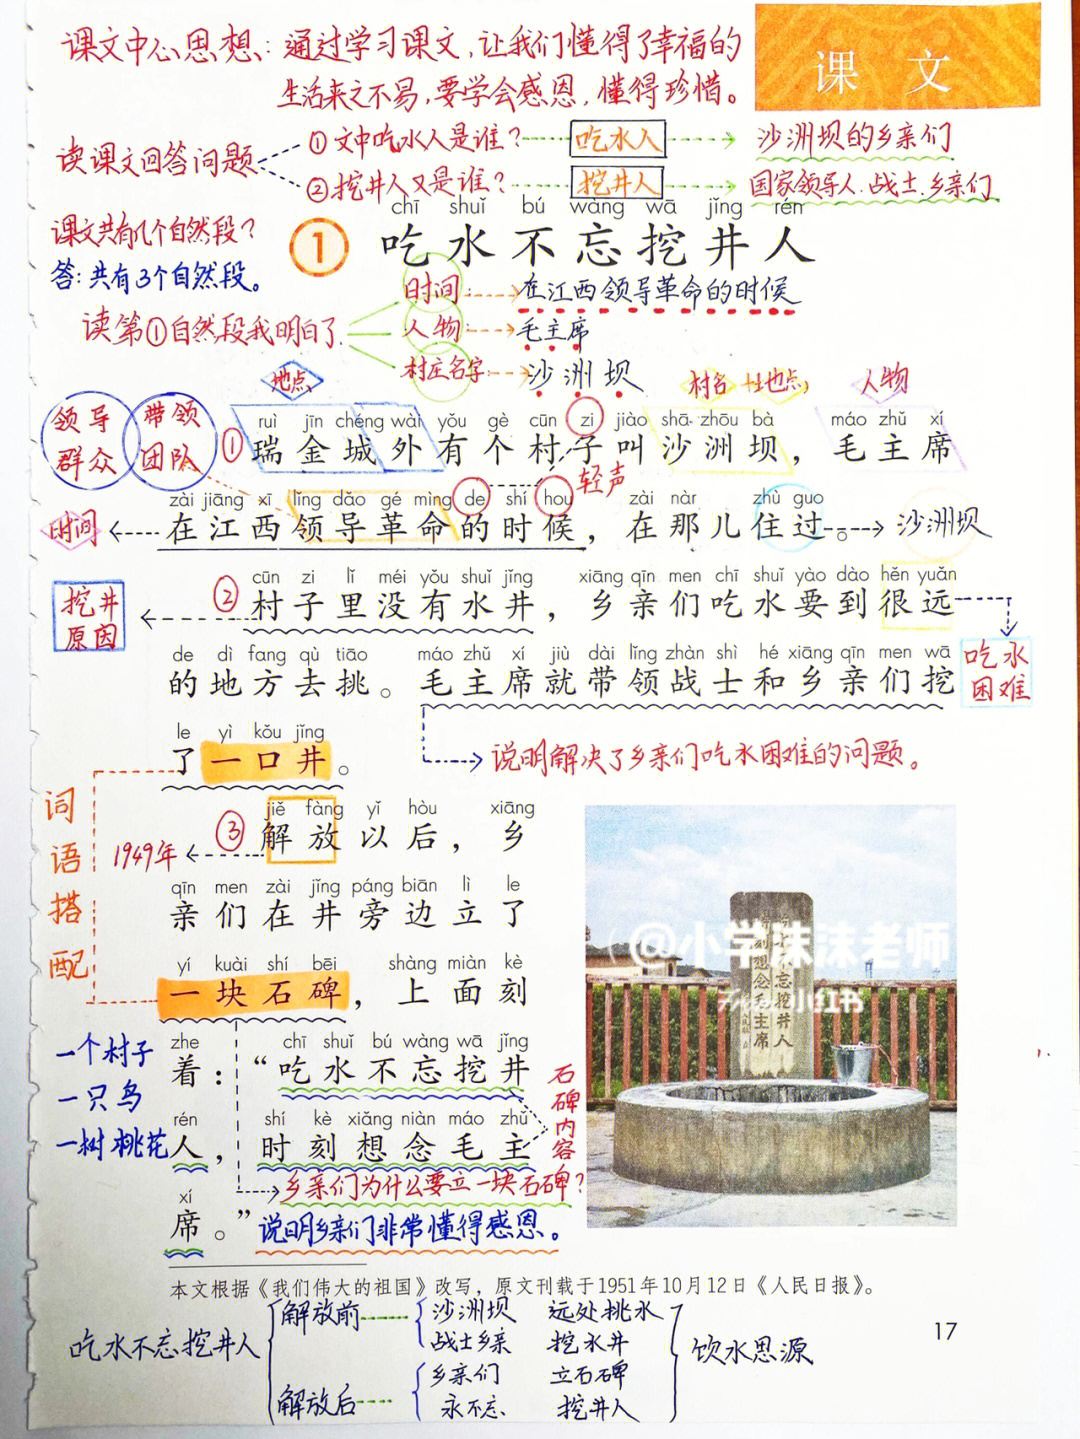 课文中心思想：通过学习课文,让我们懂得了幸福的
生活来之不易,要学会感恩,懂得珍惜。
课 文
读课文回答问题
①文中吃水人是谁？ 吃水人 沙洲坝的乡亲们
②挖井人又是谁？ 挖井人 国家领导人.战士.乡亲们
课文共有几个自然段？
答:共有3个自然段。
chī shuǐ bú wàng wā jǐng rén
1 吃水不忘挖井人
读第①自然段我明白了
时间: 在江西领导革命的时候
人物: 毛主席
村庄名字: 沙洲坝
地点
村名 地点
人物
领导群众
带领团队
ruì jīn chéng wài yǒu gè cūn zi jiào shā zhōu bà máo zhǔ xí
① 瑞金城外有个村子叫沙洲坝，毛主席
轻声
zài jiāng xī lǐng dǎo gé mìng de shí hou zài nàr zhù guo
时间 在江西领导革命的时候，在那儿住过。 沙洲坝
cūn zi lǐ méi yǒu shuǐ jǐng xiāng qīn men chī shuǐ yào dào hěn yuǎn
挖井原因 ② 村子里没有水井，乡亲们吃水要到很远
吃水困难
de dì fang qù tiāo máo zhǔ xí jiù dài lǐng zhàn shì hé xiāng qīn men wā
的地方去挑。毛主席就带领战士和乡亲们挖
le yì kǒu jǐng
了一口井。
说明解决了乡亲们吃水困难的问题。
词语搭配
jiě fàng yǐ hòu xiāng
1949年 ③ 解放以后，乡
qīn men zài jǐng páng biān lì le
亲们在井旁边立了
yí kuài shí bēi shàng miàn kè
一块石碑，上面刻
zhe chī shuǐ bú wàng wā jǐng
着：“吃水不忘挖井
rén shí kè xiǎng niàn máo zhǔ
人，时刻想念毛主
xí
席。”
一个村子
一只鸟
一树桃花
石碑内容
乡亲们为什么要立一块石碑?
说明乡亲们非常懂得感恩。
吃水不忘挖井人
时刻想念毛主席
@小学沫沫老师
小红书
本文根据《我们伟大的祖国》改写，原文刊载于1951年10月12日《人民日报》。
17
吃水不忘挖井人
解放前 沙洲坝 远处挑水
战士乡亲 挖水井
解放后 乡亲们 立石碑
永不忘 挖井人
饮水思源